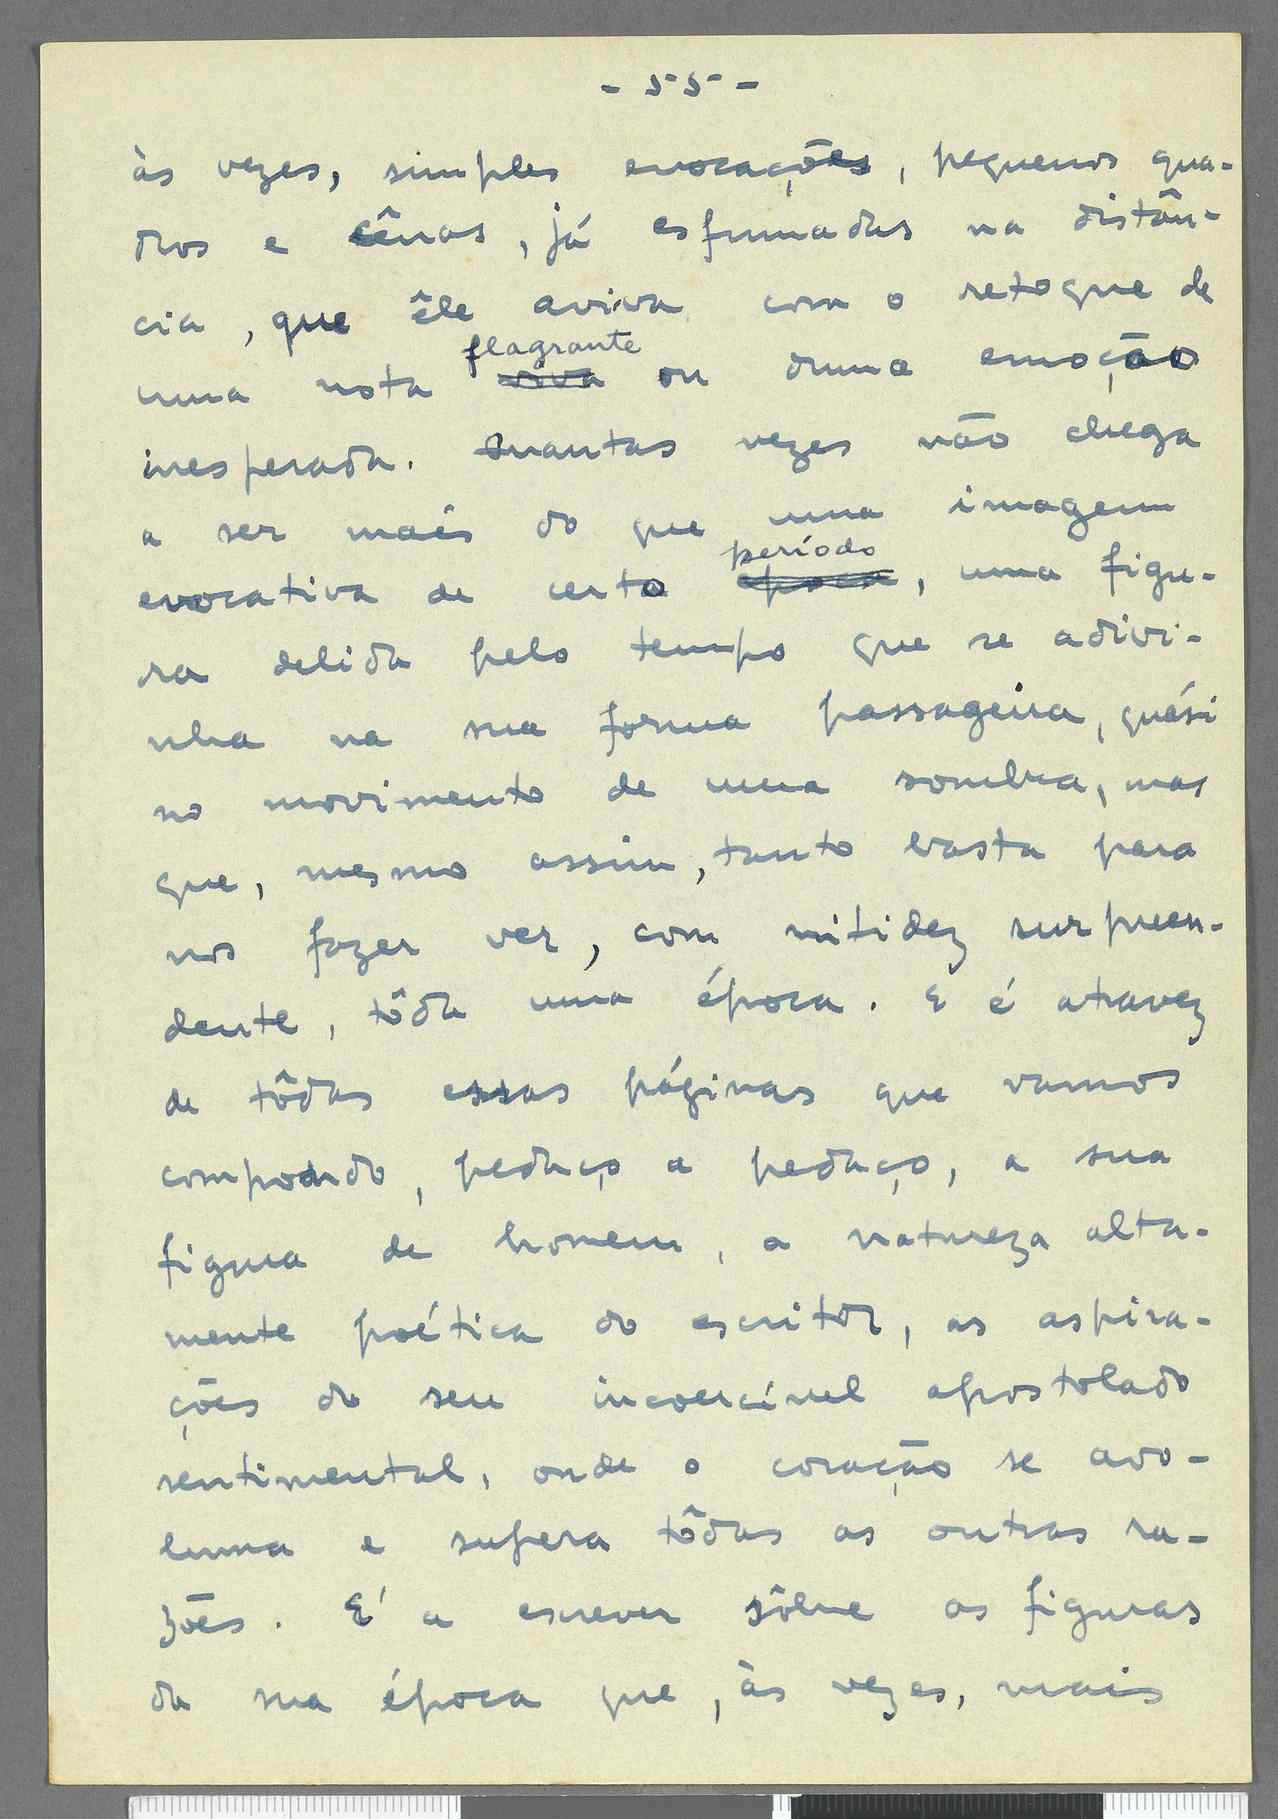 - 55 -
às vezes, simples evocações, pequenos qua-
dros e cênas, já esfumadas na distân-
cia, que êle aviva com o retoque de
flagrante
uma nota viva ou duma emoção
inesperada. Quantas vezes não chega
a ser mais do que uma imagem
período
evocativa de certo época, uma figu-
ra delida pelo tempo que se adivi-
nha na sua forma passageira, quási
no movimento de uma sombra, mas
que, mesmo assim, tanto basta para
nos fazer ver, com nitidez surpreen-
dente, tôda uma época. E é atravez
de tôdas essas páginas que vamos
compondo, pedaço a pedaço, a sua
figura de homem, a natureza alta-
mente poética do escritor, as aspira-
ções do seu incoercível apostolado
sentimental, onde o coração se avo-
luma e supera tôdas as outras ra-
zões. E' a escrever sôbre as figuras
da sua época que, às vezes, mais